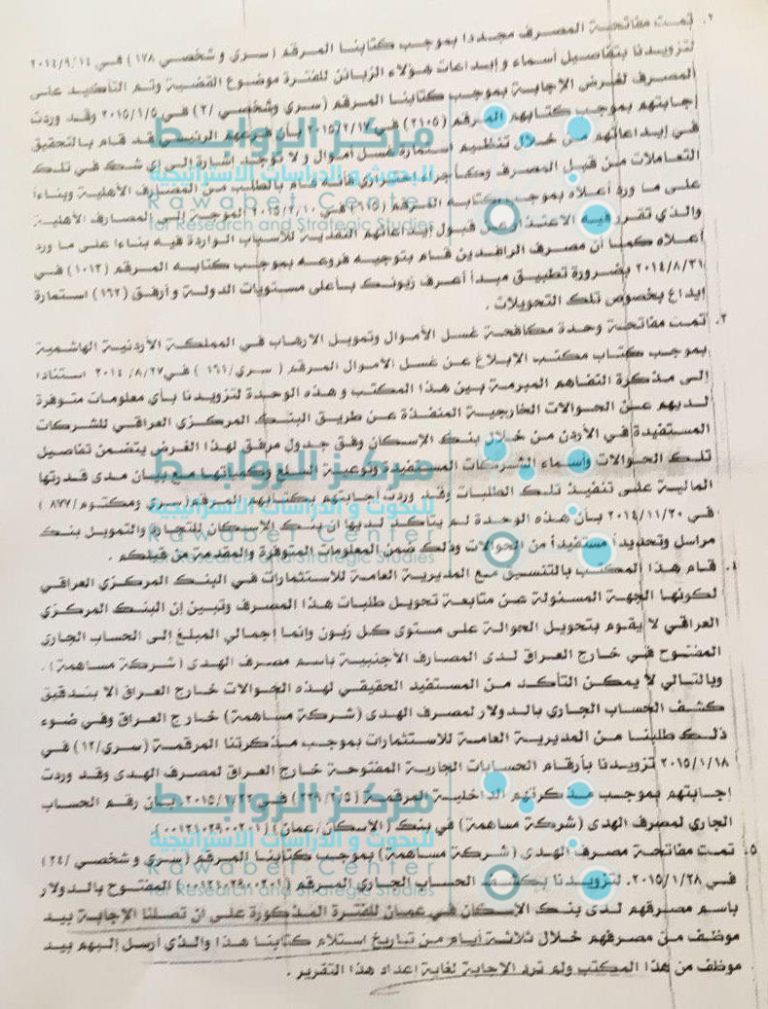 ٢. تمت مفاتحة المصرف مجددا بموجب كتابنا المرقم (سري و شخصي ١٧٨) في ٢٠١٤/٩/١٤
لتزويدنا بتفاصيل أسماء و إيداعات هؤلاء الزبائن للفترة موضوع القضية وتم التأكيد على
المصرف لغرض الإجابة بموجب كتابنا المرقم (سري وشخصي /٢) في ٢٠١٥/١/٥ وقد وردت
إجابتهم بموجب كتابهم المرقم (٢١٠٥) في ٢٠١٥/٢/١٧ بأن فرعهم الرئيسي قد قام بالتحقيق
في إيداعاتهم من خلال تنظيم استمارة غسل أموال و لا توجد إشارة إلى أي شك في تلك
التعاملات من قبل المصرف وكإجراء احترازي فأنه قام بالطلب من المصارف الأهلية وبناءا
على ما ورد أعلاه بموجب كتابه المرقم في ٢٠١٥/٢/١٠ الموجه إلى المصارف الأهلية
والذي تقرر فيه الاعتذار عن قبول إيداعاتهم النقدية للأسباب الواردة فيه بناءا على ما ورد
أعلاه كما أن مصرف الرافدين قام بتوجيه فروعه بموجب كتابه المرقم (١٠١٣) في
٢٠١٤/٨/٣١ بضرورة تطبيق مبدأ أعرف زبونك بأعلى مستويات الدولة و أرفق (١٦٢) استمارة
إيداع بخصوص تلك التحويلات .
٣. تمت مفاتحة وحدة مكافحة غسل الأموال وتمويل الارهاب في المملكة الأردنية الهاشمية
بموجب كتاب مكتب الإبلاغ عن غسل الاموال المرقم (سري/١٦١) في ٢٠١٤/٨/٢٧ استنادا
إلى مذكرة التفاهم المبرمة بين هذا المكتب و هذه الوحدة لتزويدنا بأي معلومات متوفرة
لديهم عن الحوالات الخارجية المنفذة عن طريق البنك المركزي العراقي للشركات
المستفيدة في الأردن من خلال بنك الإسكان وفق جدول مرفق لهذا الغرض يتضمن تفاصيل
تلك الحوالات وأسماء الشركات المستفيدة ونوعية السلع وكمياتها مع بيان مدى قدرتها
المالية على تنفيذ تلك الطلبات وقد وردت إجابتهم بكتابهم المرقم (سري ومكتوم/٨٧٧)
في ٢٠١٤/١١/٢٠ بأن هذه الوحدة لم يتأكد لديها ان بنك الإسكان للتجارة والتمويل بنك
مراسل وتحديداً مستفيداً من الحوالات وذلك ضمن المعلومات المتوفرة والمقدمة من قبلكم .
٤. قام هذا المكتب بالتنسيق مع المديرية العامة للاستثمارات في البنك المركزي العراقي
لكونها الجهة المسئولة عن متابعة تحويل طلبات هذا المصرف وتبين إن البنك المركزي
العراقي لا يقوم بتحويل الحوالة على مستوى كل زبون وانما إجمالي المبلغ إلى الحساب الجاري
المفتوح في خارج العراق لدى المصارف الأجنبية باسم مصرف الهدى (شركة مساهمة) .
وبالتالي لا يمكن التأكد من المستفيد الحقيقي لهذه الحوالات خارج العراق الا بتدقيق
كشف الحساب الجاري بالدولار لمصرف الهدى (شركة مساهمة) خارج العراق وفي ضوء
ذلك طلبنا من المديرية العامة للاستثمارات بموجب مذكرتنا المرقمة (سري/١٢) في
٢٠١٥/١/١٨ تزويدنا بأرقام الحسابات الجارية المفتوحة خارج العراق لمصرف الهدى وقد وردت
إجابتهم بموجب مذكرتهم الداخلية المرقمة (٢٣٩/٢/٥) في ٢٠١٥/١/٢٢ بأن رقم الحساب
الجاري لمصرف الهدى (شركة مساهمة) في بنك (الإسكان/عمان)
٥. تمت مفاتحة مصرف الهدى (شركة مساهمة) بموجب كتابنا المرقم (سري و شخصي /٢٤)
في ٢٠١٥/١/٢٨. لتزويدنا بكشف الحساب الجاري المرقم المفتوح بالدولار
باسم مصرفهم لدى بنك الإسكان في عمان للفترة المذكورة على ان تصلنا الإجابة بيد
موظف من مصرفهم خلال ثلاثة أيام من تاريخ استلام كتابنا هذا والذي أرسل إليهم بيد
موظف من هذا المكتب ولم ترد الإجابة لغاية اعداد هذا التقرير .
مركز الروابط
للبحوث و الدراسات الاستراتيجية
Rawabet Center
for Research and Strategic Studies
مركز الروابط
للبحوث و الدراسات الاستراتيجية
Rawabet Center
for Research and Strategic Studies
مركز الروابط
للبحوث و الدراسات الاستراتيجية
Rawabet Center
for Research and Strategic Studies